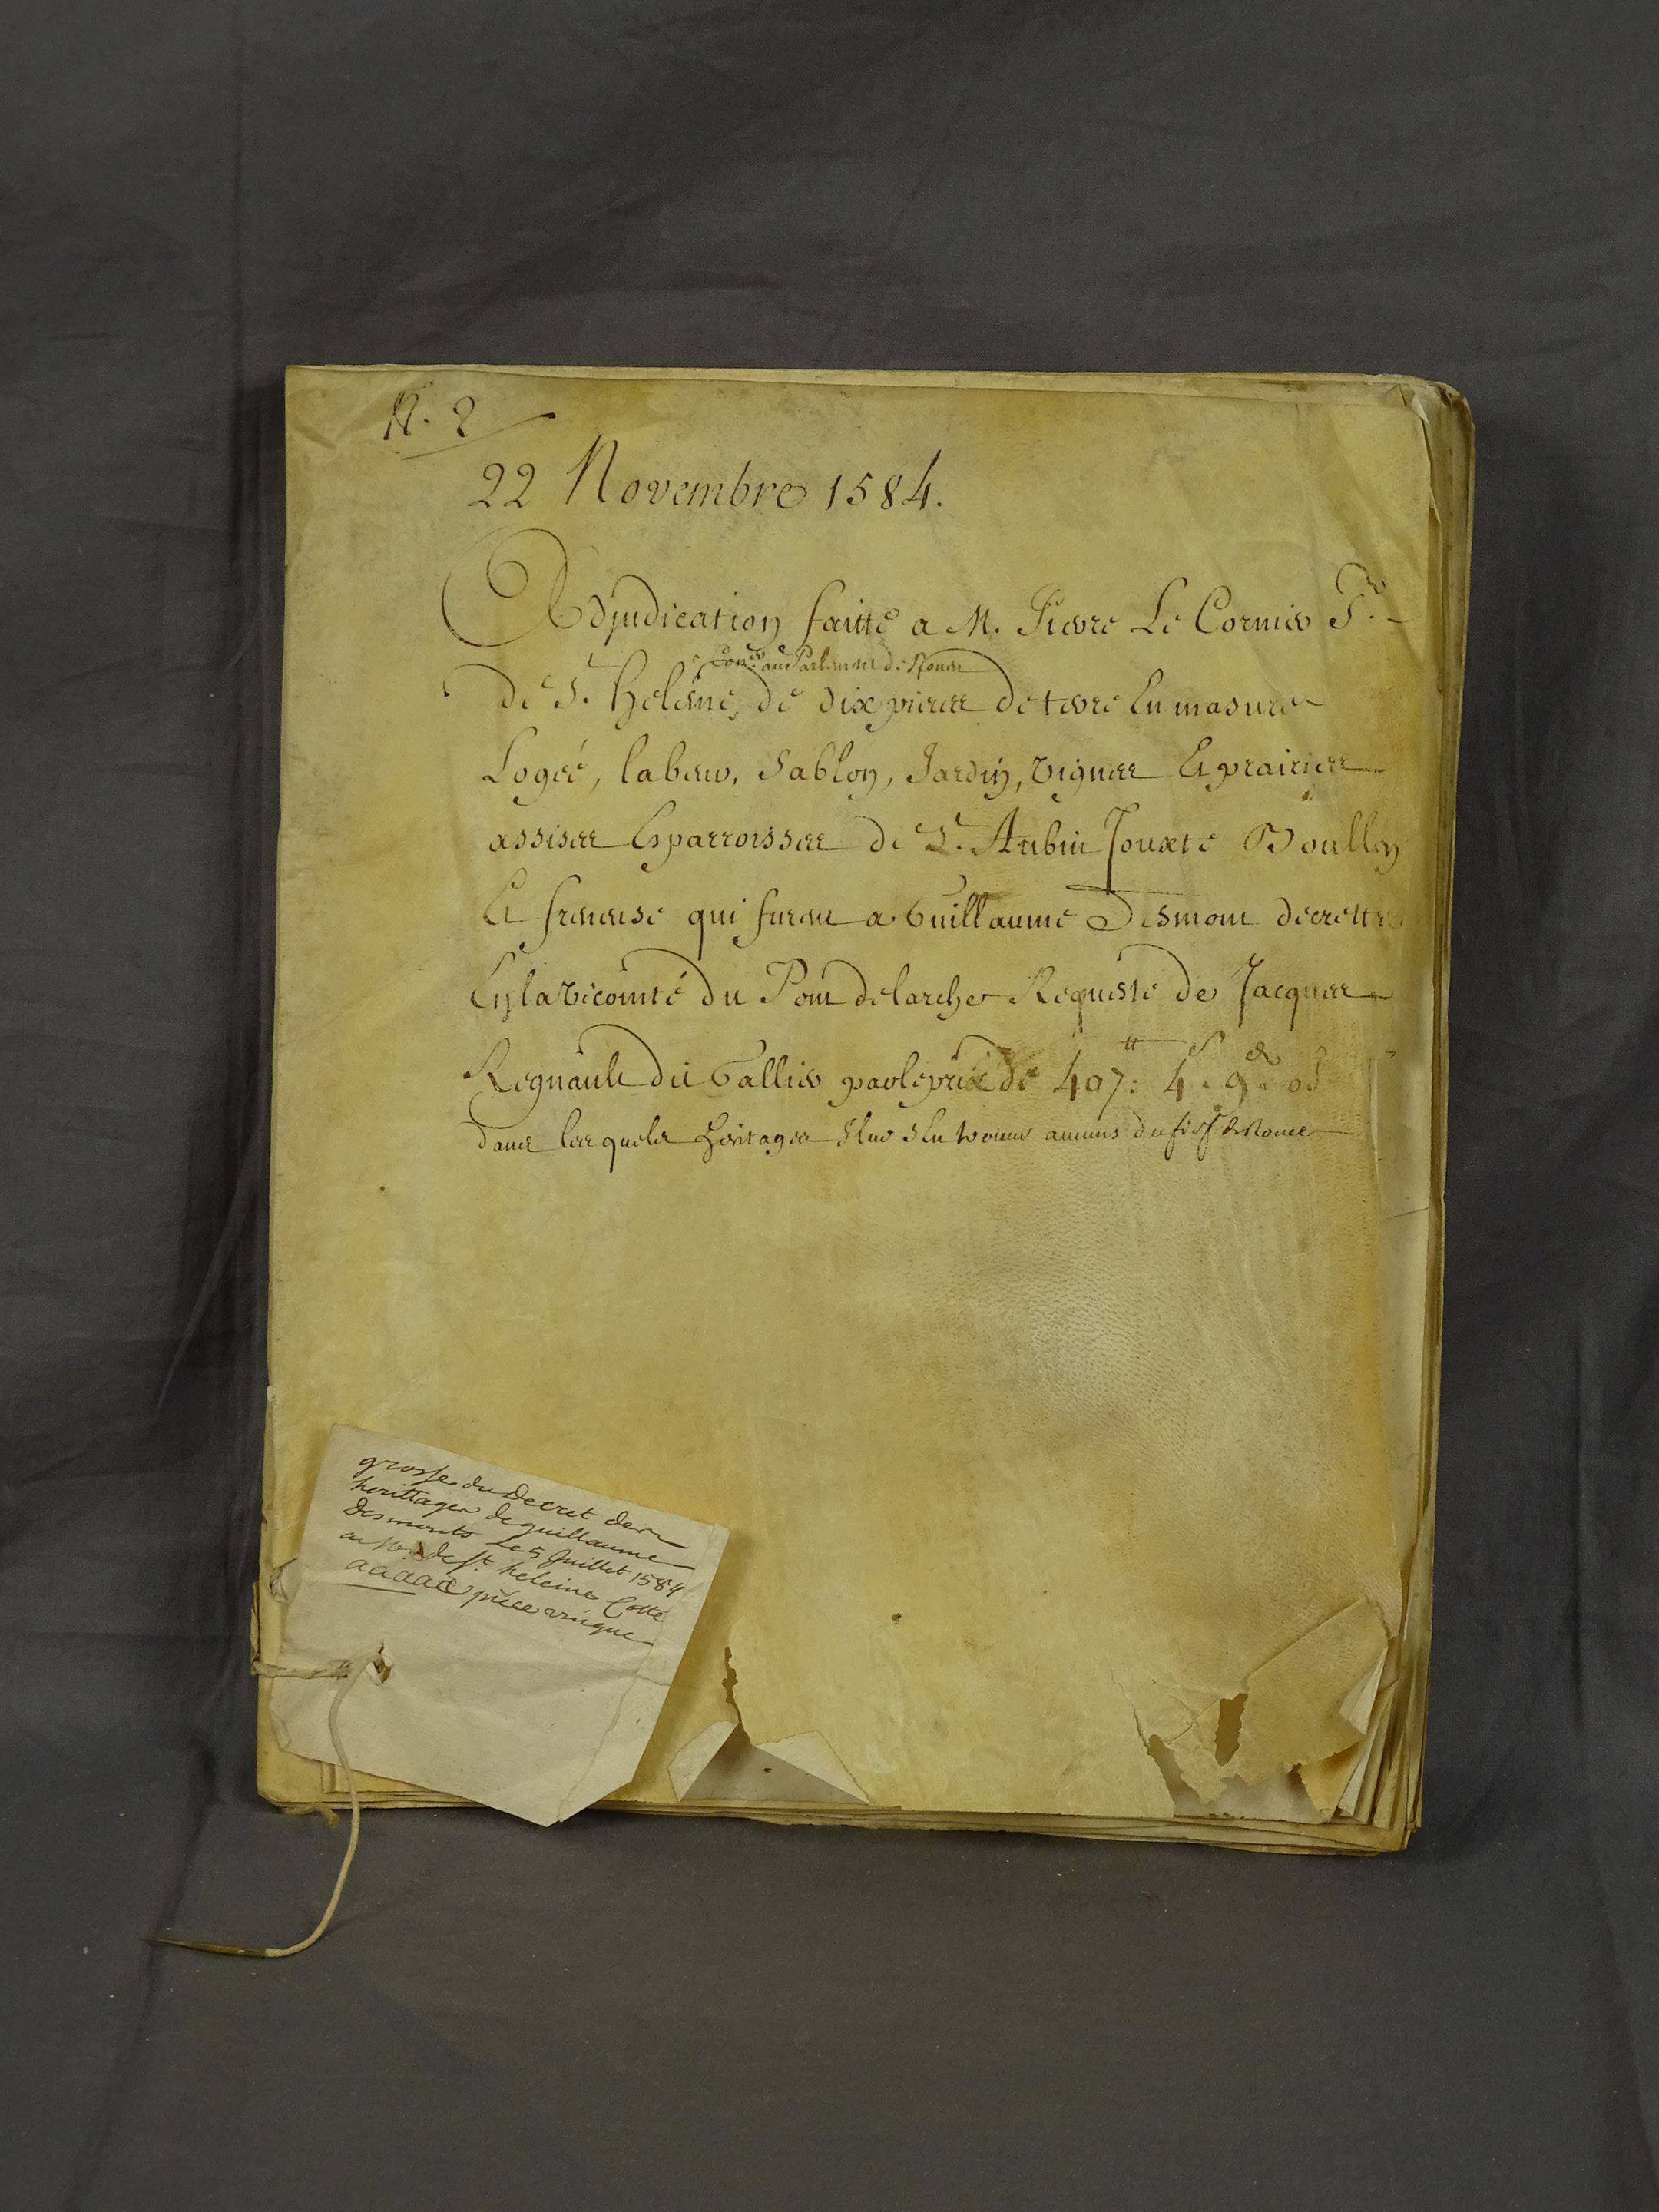 N. 2
22 Novembre 1584.
Adjudication faitte a M. Pierre Le Cornier Sr.
coner. au Parlement de Rouen
de St. Helene, de dix pieces de terre En masure
Logéé, labeur, sablon, Jardin, vignes Et prairies
assises Es parroisses de St. Aubin Jouxte Boullen
Et freneuse qui furent a Guillaume Desmont decretté
En la vicomté du Pont de larche Requeste de Jacques
Regnault du Gallier par le prix de 407tt: 4s. 9d.
dans les quels heritages du fief
grosse du Decret des
herittages de guillaume
Desmonts Le 5 Juillet 1584
au Sr. de St. heleine Cotté
aaaaa piece unique